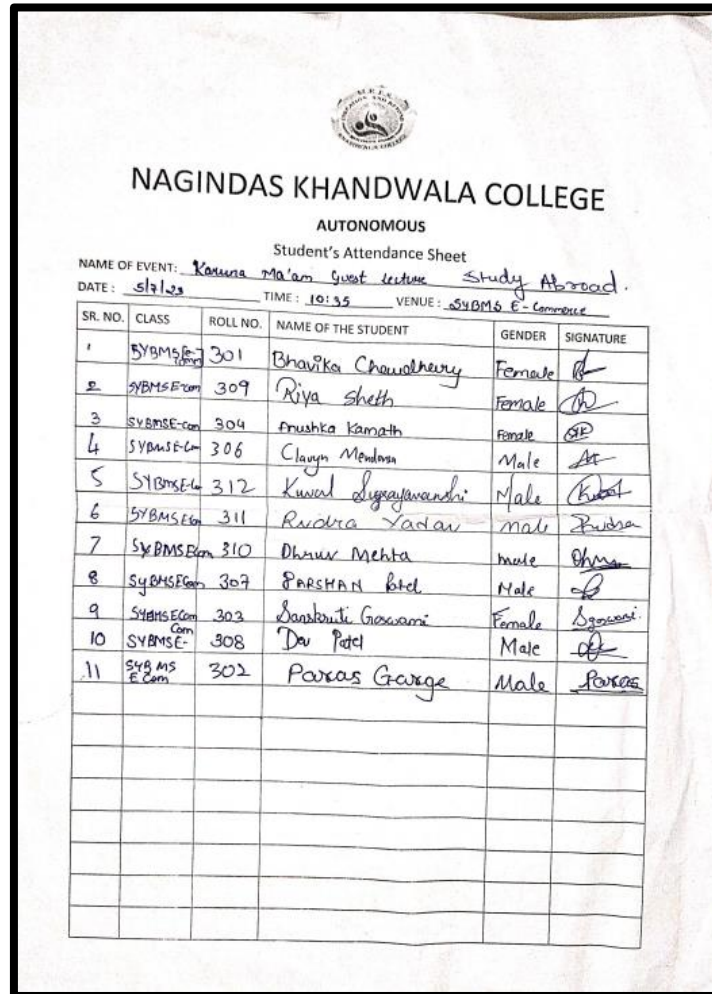 M.K.E.S.
NAGINDAS KHANDWALA COLLEGE
AUTONOMOUS
Student's Attendance Sheet
NAME OF EVENT: Karuna Ma'am Guest lecture Study Abroad.
DATE : 5/7/23 TIME : 10:35 VENUE : SYBMS E-Commerce
SR. NO. CLASS ROLL NO. NAME OF THE STUDENT GENDER SIGNATURE
1 SYBMS 301 Bhavika Chowdhury Female
2 SYBMS E-com 309 Riya Sheth Female
3 SYBMSE-Com 304 Anushka Kamath Female
4 SYBMSE-Com 306 Mendonsa Male
5 SYBMSE-Co 312 Kuval Male
6 SYBMS ECom 311 Rudra Yadav male Rudra
7 SYBMSECom 310 Dhruv Mehta male
8 SyBMSECom 307 Patel Male
9 SYBMSECom 303 Sanskruti Goswami Female Sgoswami.
10 SYBMSE-Com 308 Dev Patel Male
11 SYBMS E Com 302 Paras Garge Male Paras